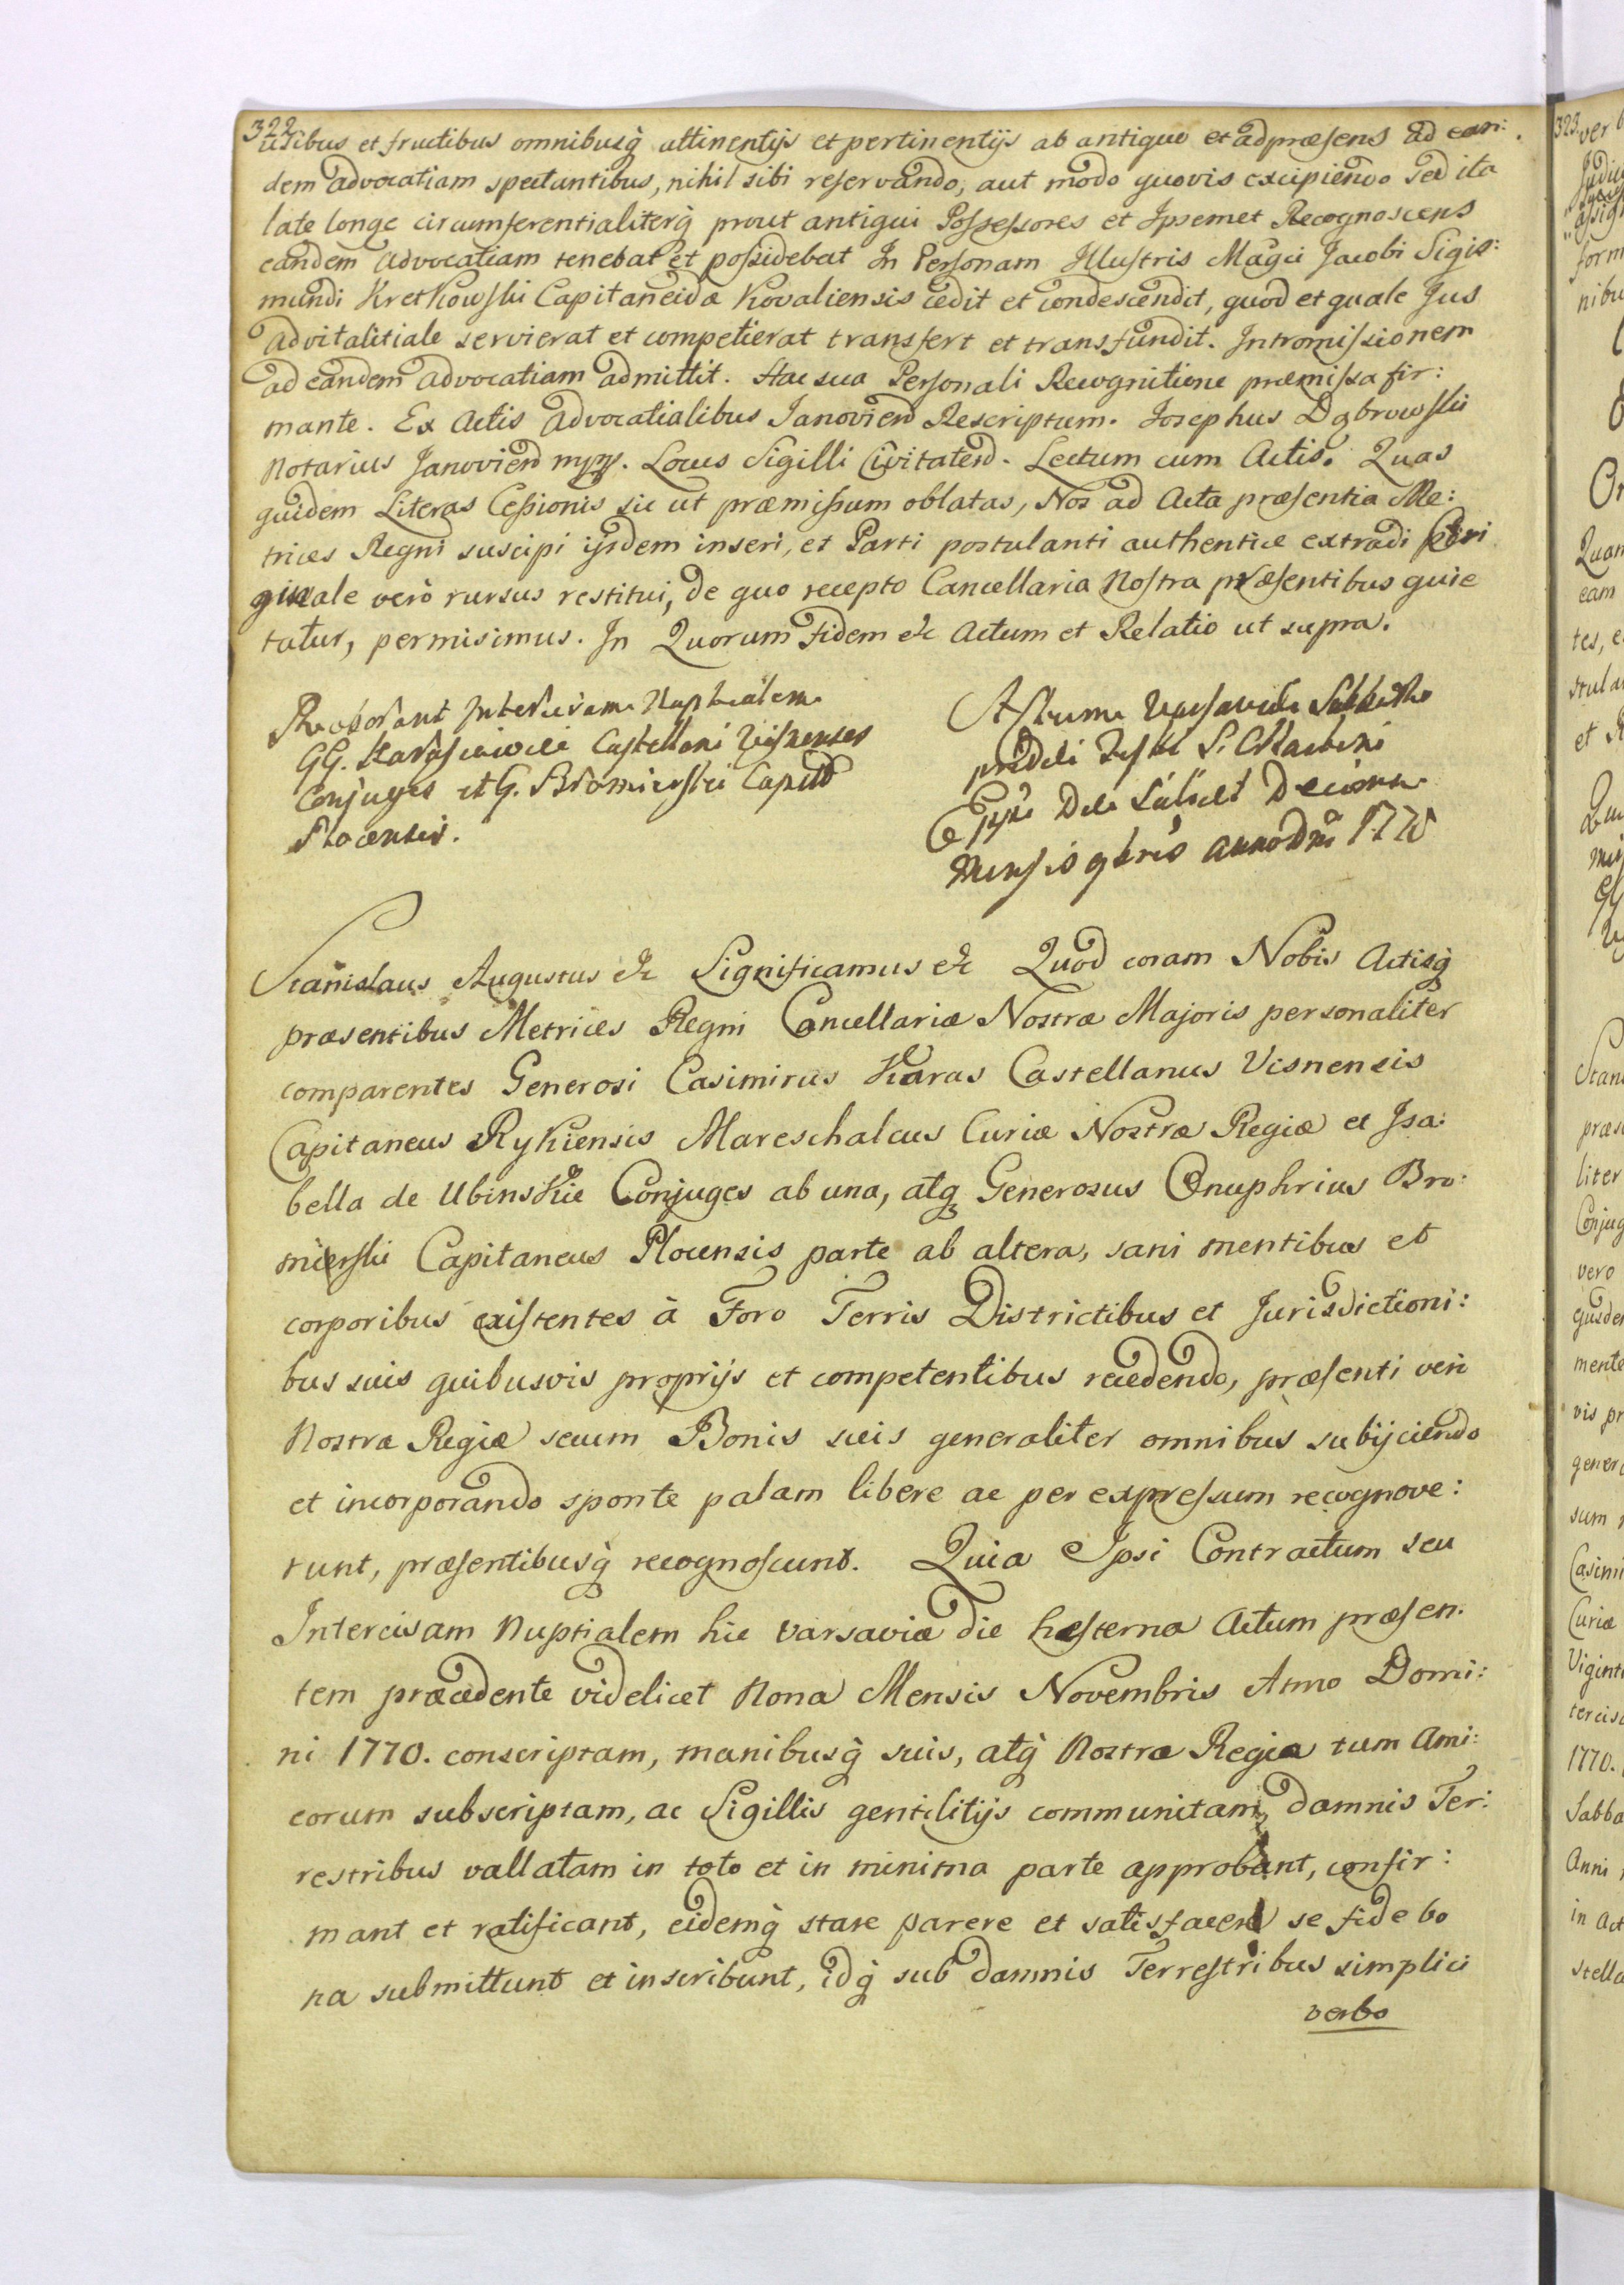 322
utibus et fructibus omnibusq̀ attinentijs et pertinentijs ab antiquo et ad præsens ad ean:
dem advocatiam spectantibus, nihil sibi reservando, aut modo quovis excipiendo sed ita
late longe circumferentialiterq̀ prout antiqui Possessores et Ipsemet Recognoscens
eandem advocatiam tenebat et possidebat In Personam Illustris Magci Jacobi Sigis:
mundi Kretkowski Capitaneidæ Kovaliensis cedit et condescendit, quod et quale Jus
advitalitiale servierat et competierat transfert et transfundit. Intromissionem
ad eandem advocatiam admittit. Hac sua Personali Recognitione præmissa fir:
mante. Ex Actis advocatialibus Janovien Rescriptum. Josephus Dąbrowski
Notarius Janovien mpp. Locus Sigilli Civitaten. Lectum cum Actis. Quas
quidem Literas Cessionis sic ut præmissum oblatas, Nos ad Acta præsentia Me:
trices Regni suscipi ijsdem inseri, et Parti postulanti authentice extradi Ori
ginale verò rursus restitui, de quo recepto Cancellaria Nostra præsentibus quie
tatur, permisimus. In Quorum Fidem etc Actum et Relatio ut supra.
Roborant Intercisam Nuptialem
GG. Karasiowie Castellani Visnenses
Conjuges et G. Bromierski Capits
Plocensis.
Actum Varsaviæ Sabbatho
pridie Festi S. Martini
Eppi Die scilicet Decima
Mensis 9bris Anno Dni 1770
Stanislaus Augustus etc Significamus etc Quod coram Nobis Actisq̀
præsentibus Metrices Regni Cancellariæ Nostræ Majoris personaliter
comparentes Generosi Casimirus Karas Castellanus Visnensis
Capitaneus Rykiensis Mareschalcus Curiæ Nostræ Regiæ et Isa:
bella de Ubinskie Conjuges ab una, atq̀ Generosus Onuphrius Bro:
mierski Capitaneus Plocensis parte ab altera, sani mentibus et
corporibus existentes à Foro Terris Districtibus et Jurisdictioni:
bus suis quibusvis proprijs et competentibus recedendo, præsenti verò
Nostræ Regiæ secum Bonis suis generaliter omnibus subijciendo
et incorporando sponte palam libere ac per expressum recognove:
runt, præsentibusq̀ recognoscunt. Quia Ipsi Contractum seu
Intercisam Nuptialem hic Varsaviæ die hesterna Actum præsen.
tem præcedente videlicet Nona Mensis Novembris Anno Domi:
ni 1770. conscriptam, manibusq̀ suis, atq̀ Nostra Regia tum Ami:
corum subscriptam, ac Sigillis gentilitijs communitam, damnis Ter:
restribus vallatam in toto et in minima parte approbant, confir:
mant et ratificant, eidemq̀ stare parere et satisfacere se fide bo
na submittunt et inscribunt, idq̀ sub damnis Terrestribus simplici
verbo